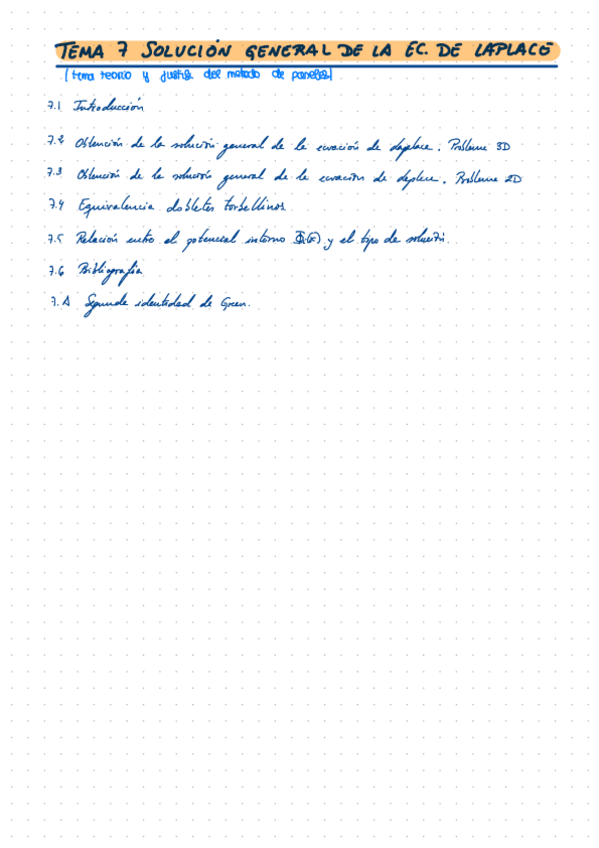 TEMA 7 SOLUCIÓN GENERAL DE LA EC. DE LAPLACE
(tema teorico y justif. del metodo de paneles)
7.1 Introducción
7.2 Obtención de la solución general de la ecuación de Laplace. Problema 3D
7.3 Obtención de la solución general de la ecuación de Laplace. Problema 2D
7.4 Equivalencia dobletes torbellinos.
7.5 Relación entre el potencial interno Φᵢ(x) y el tipo de solución.
7.6 Bibliografía
7.A Segunda identidad de Green.